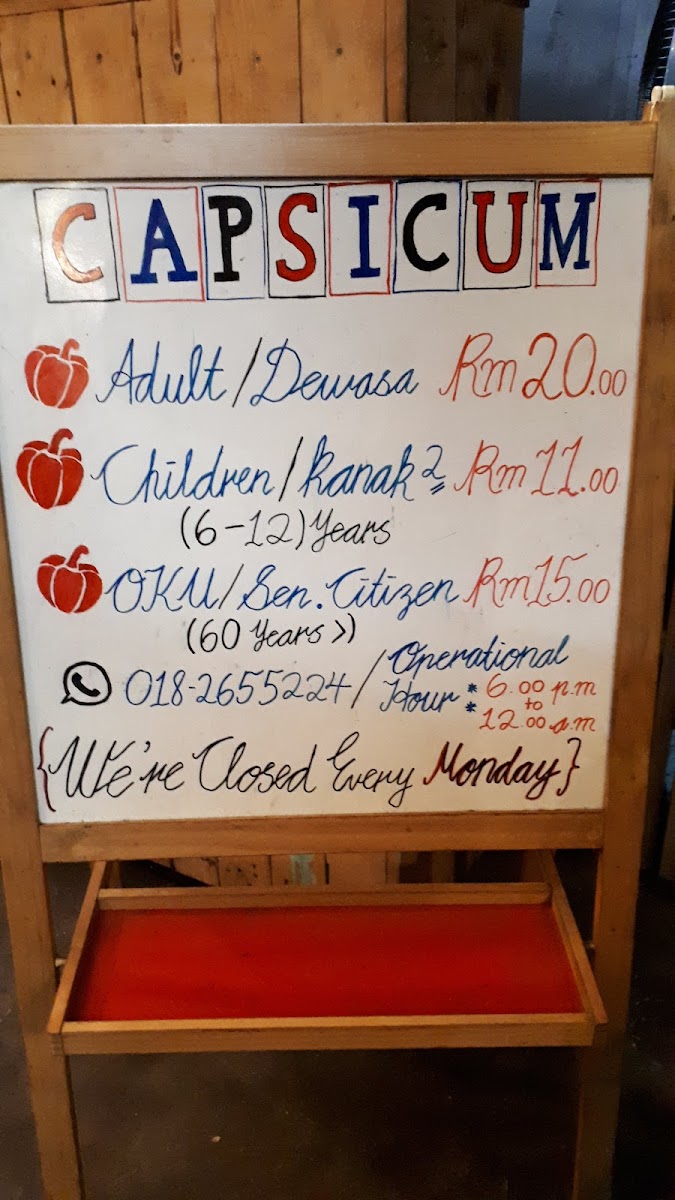 CAPSICUM
Adult/Dewasa Rm20.00
Children/Kanak2 Rm11.00
(6-12) Years
OKU/Sen.Citizen Rm15.00
(60 Years >)
018-2655224/ Operational
Hour : 6.00 p.m
to
12.00 a.m
{We're Closed Every Monday}